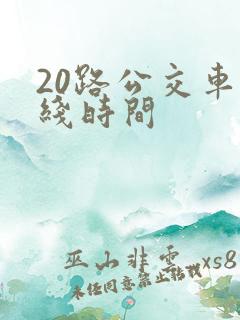 20路公交車
綫時間
巫山非雲 xs8
未任同意禁止转载